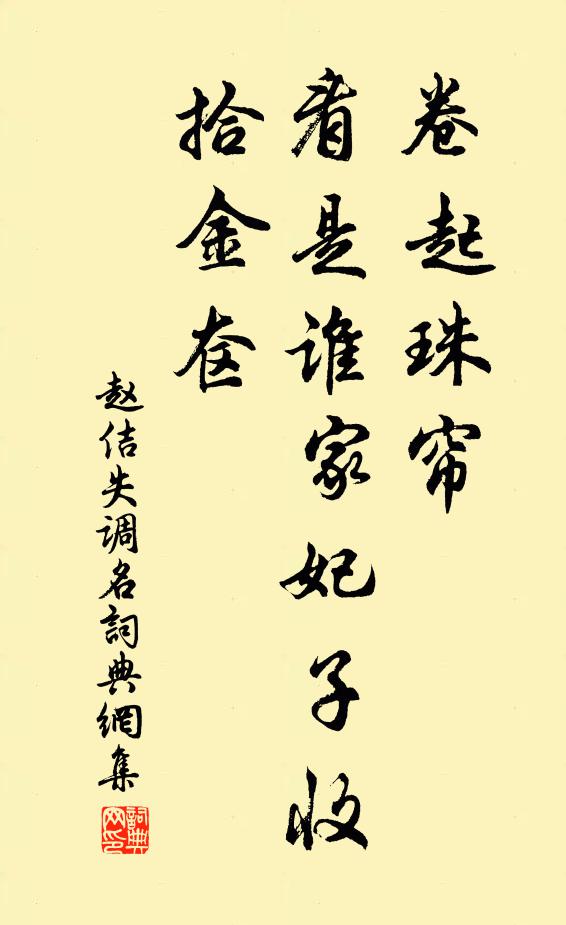 卷起珠帘
看是谁家妃子收
拾金奁
赵佶失调名詞典網集
詞典网印